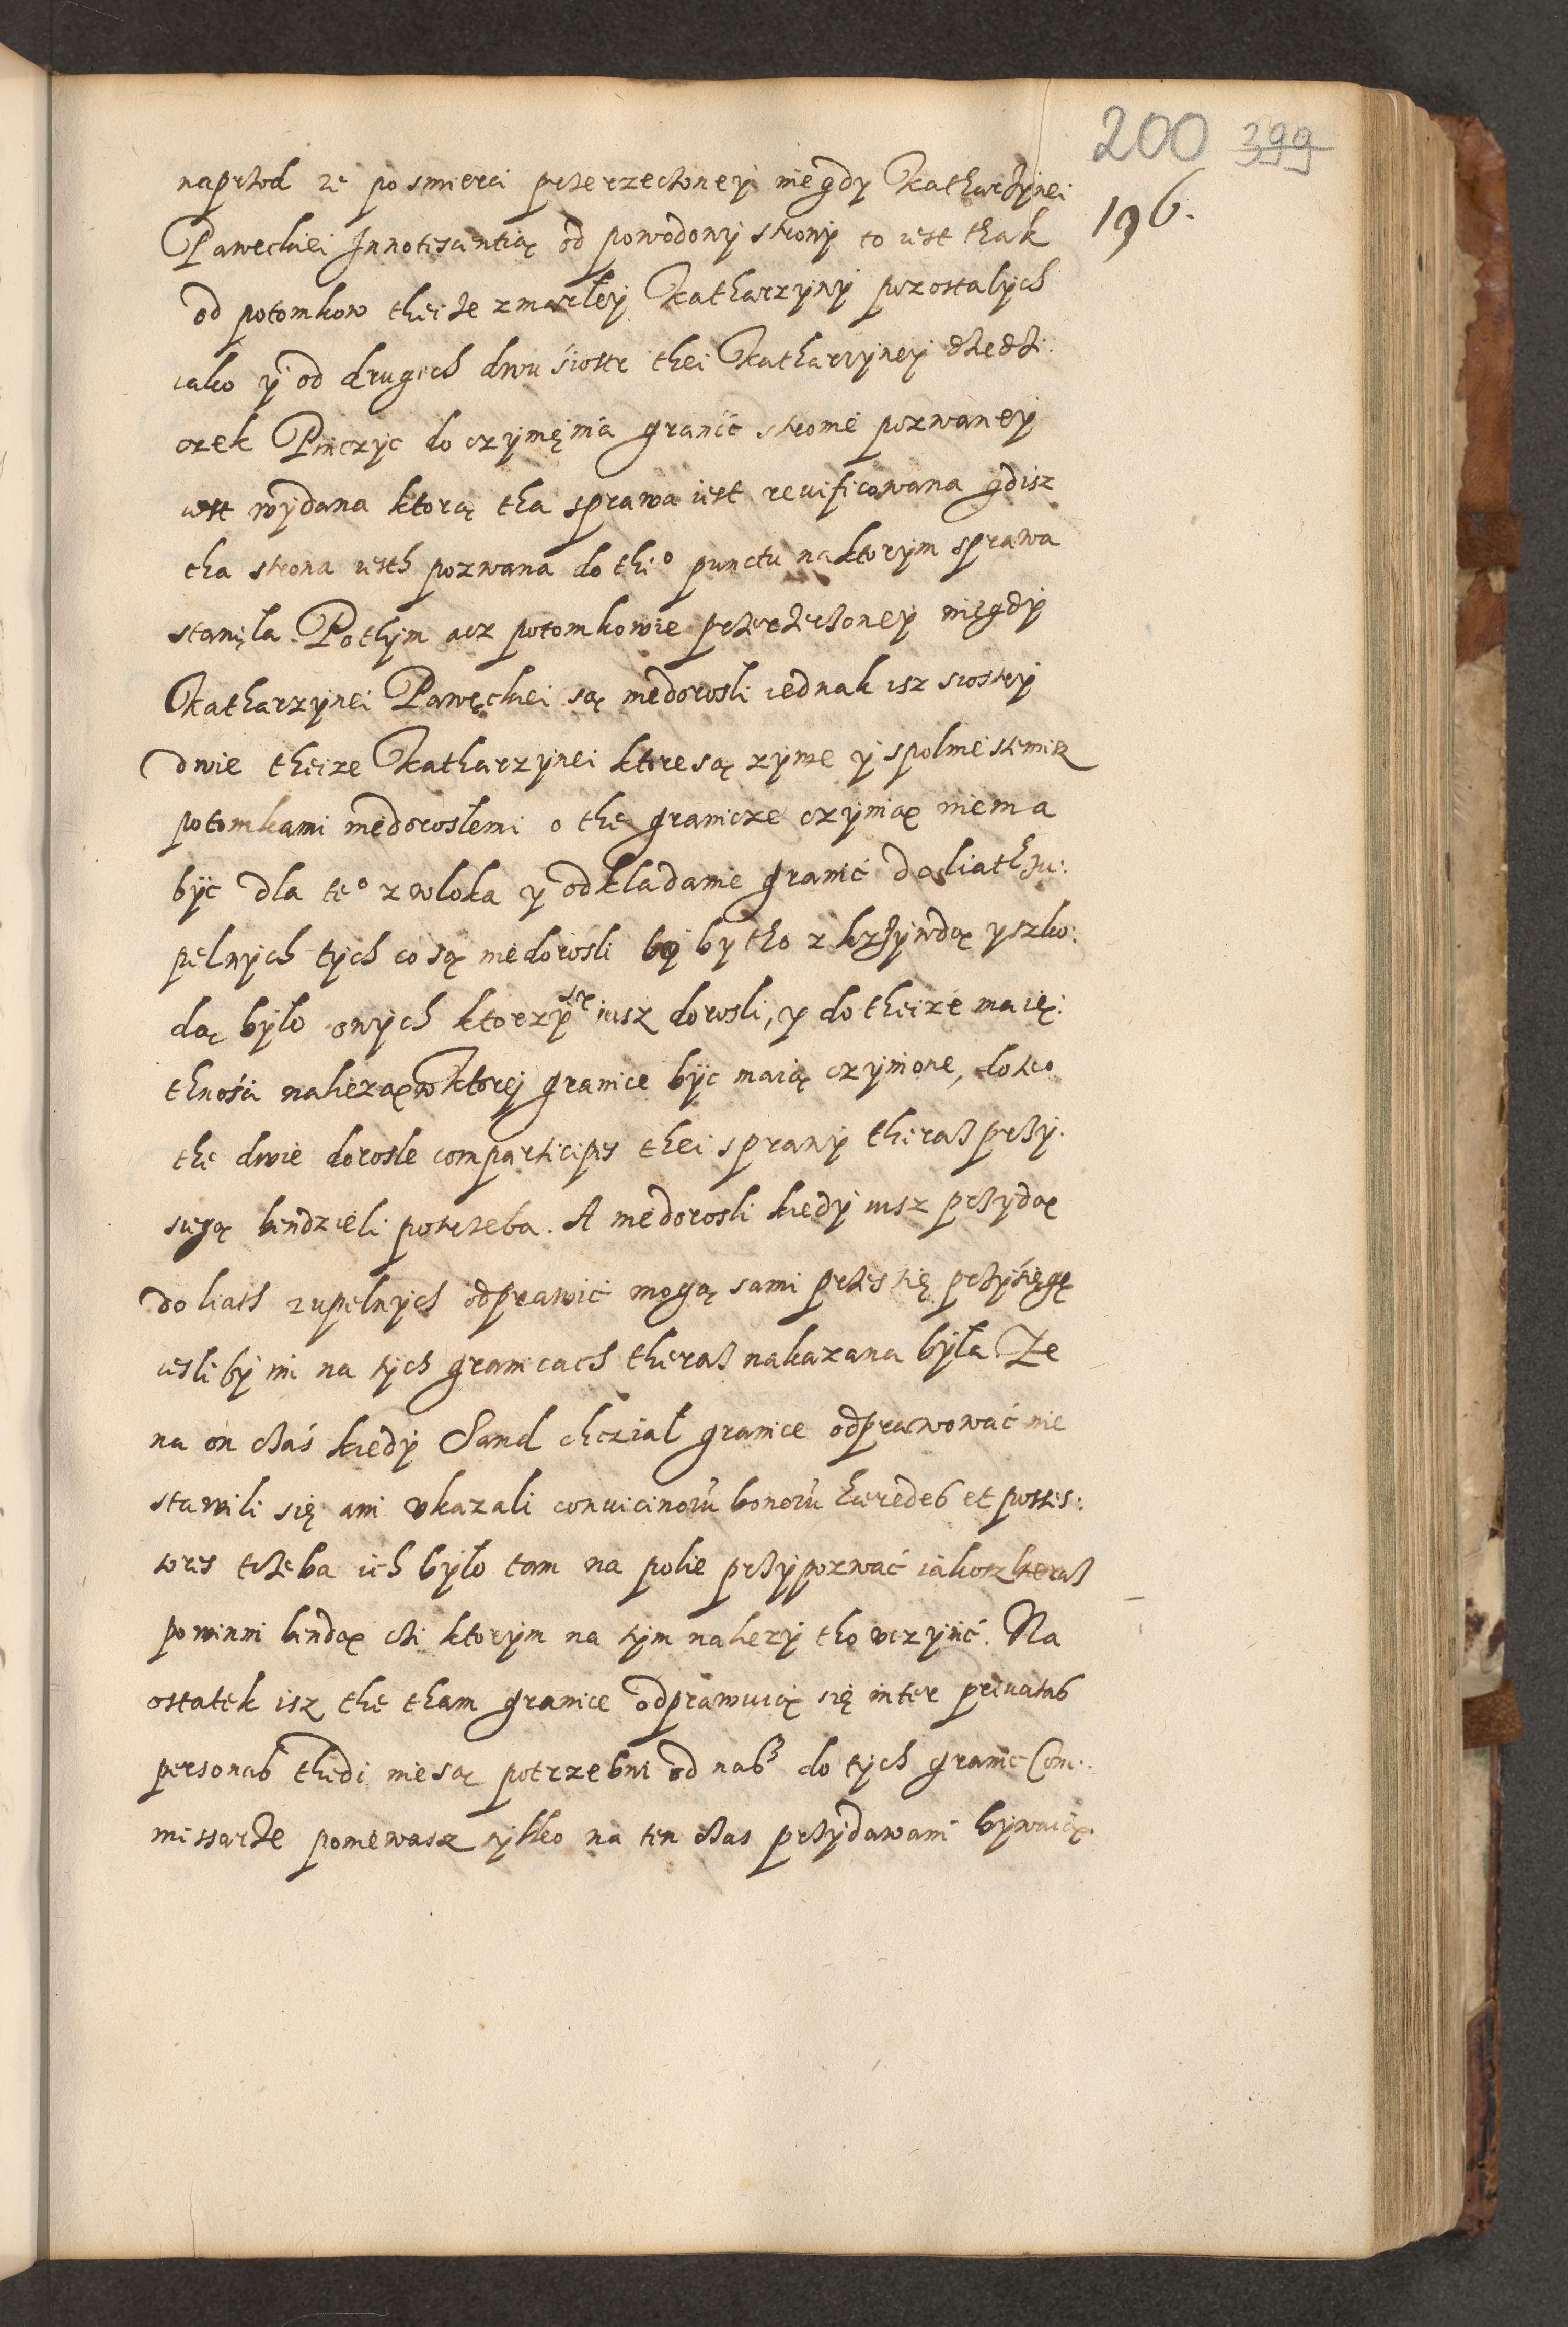 200 399
196.
naprzod ze po smierci przerzeczoney niegdy Katharzynei
Paweckiei Innotiscentią od powodowy strony to iest thak
od potomkow theize zmarłey Katharzyny pozostalych
iako y od drugich dwu siostr thei Katharzyney dziedzi:
czek Pinczyc do czynięnia granic stronie pozwaney
iest wydana ktorą tha sprawa iest reuificowana gdisz
tha strona iesth pozwana do thi° punctu na ktorym sprawa
stanęla. Pothym acz potomkowie przerzeczoney niegdy
Katharzynei Pawęckiei są niedorosli iednak isz siostry
dwie theize Katharzynei ktore są zywe y spolnie stemisz
potomkami niedoroslemi o the granicze czynią niema
byc dla te° zwloka y odkladanie granic do liath zu:
pelnych tych co są niedorosli by tho z krzywdą y szko:
dą bylo onych ktorzy są iusz dorosli, y do theize maię:
thnosci należą w ktorej granice byc maią czynione, dosco
the dwie dorosle comparticipes thei sprawy theraz przy:
sięgą bendzieli potrzeba. A niedorosli kiedy iusz przydą
do liath zupelnych odprawic mogą sami przes się przysięgę
iesli by im na tych granicach theraz nakazana była Ze
na on czas kiedy Sand chcział granice odprawować nie
stawili się ani vkazali conuicinorũ bonorũ hæredes et posses:
sores trzeba ich było tam na polie przypozwać iakosz theraz
powinni bendą czi ktorym na tym nalezy tho vczynić. Na
ostatek isz the tham granice odprawuią się inter priuatas
personas thedi nie są potrzebni od nas do tych granic Com:
missarze poniewasz tylko na ten czas przydawani bywaią.